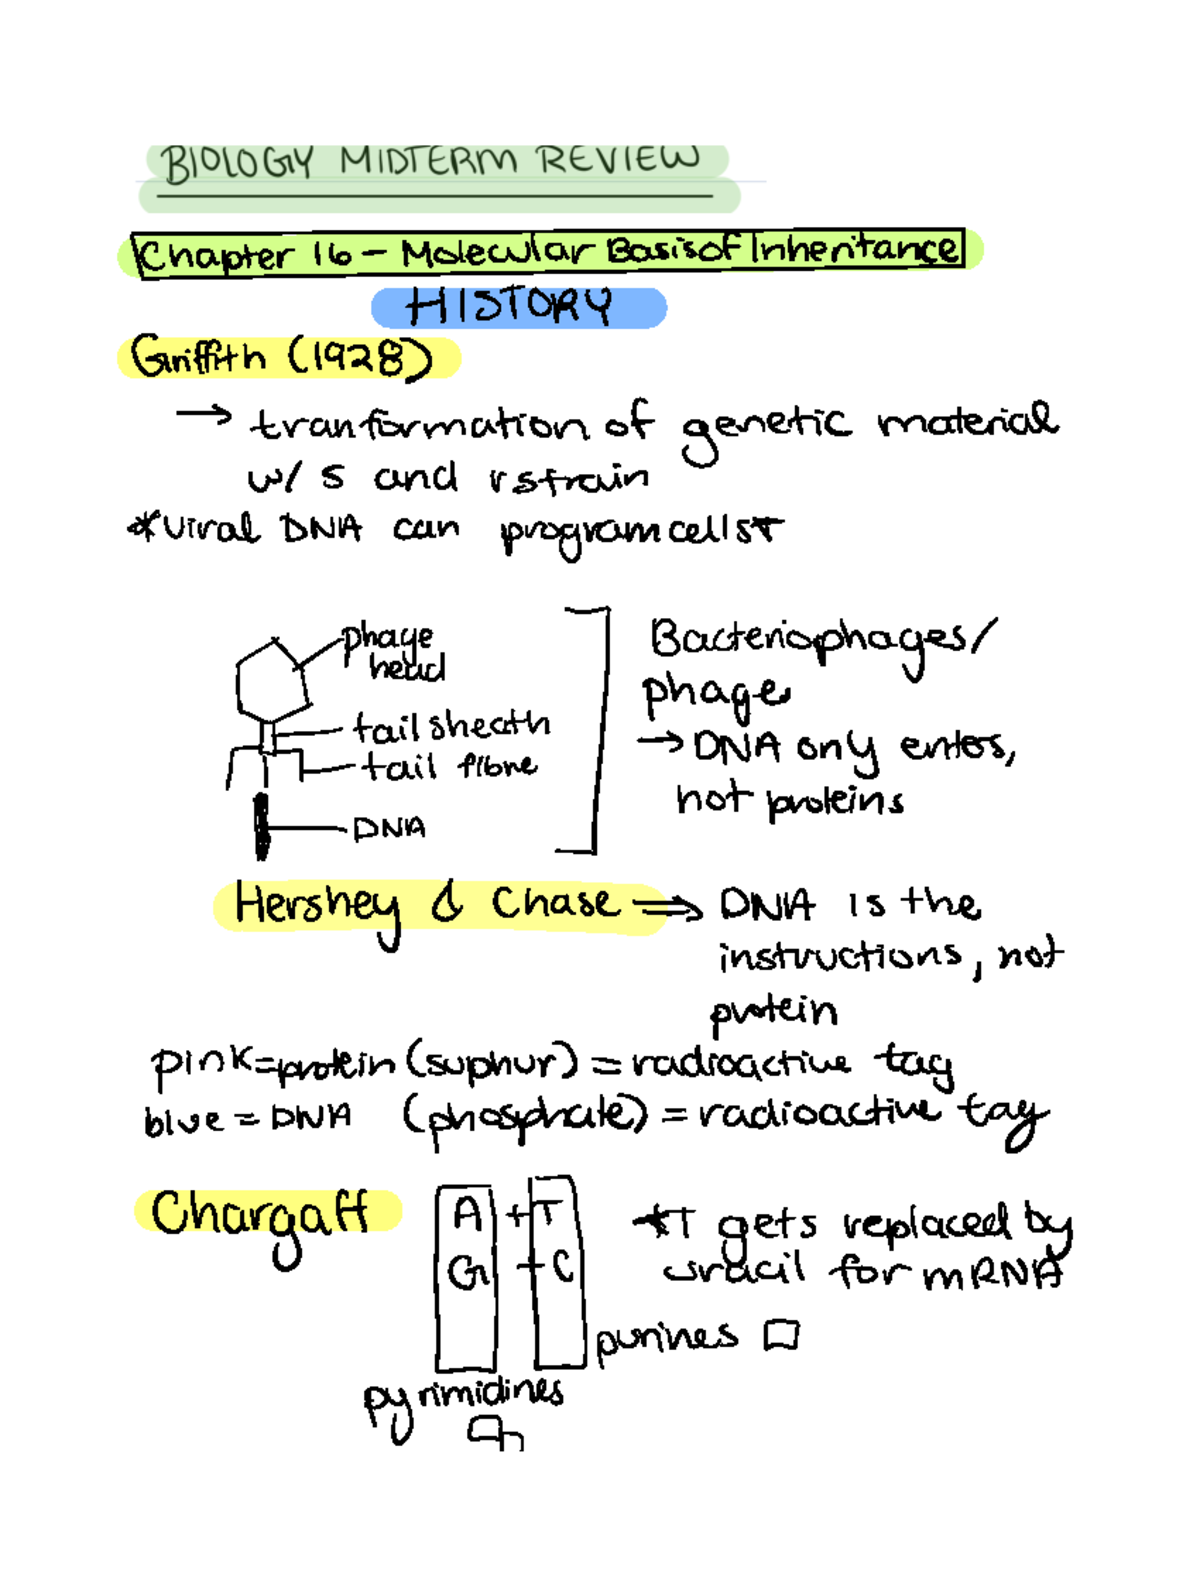 BIOLOGY MIDTERM REVIEW
Chapter 16 - Molecular Basis of Inheritance
HISTORY
Griffith (1928)
→ tranformation of genetic material
w/ S and r strain
*Viral DNA can program cells*
phage
head
tail sheath
tail fibre
DNA
Bacteriophages/
phage
→ DNA only enters,
not proteins
Hershey & Chase ⇒ DNA is the
instructions, not
protein
pink = protein (suphur) = radioactive tag
blue = DNA (phosphate) = radioactive tag
Chargaff
A + T
G + C
*T gets replaced by
uracil for mRNA
purines
pyrimidines